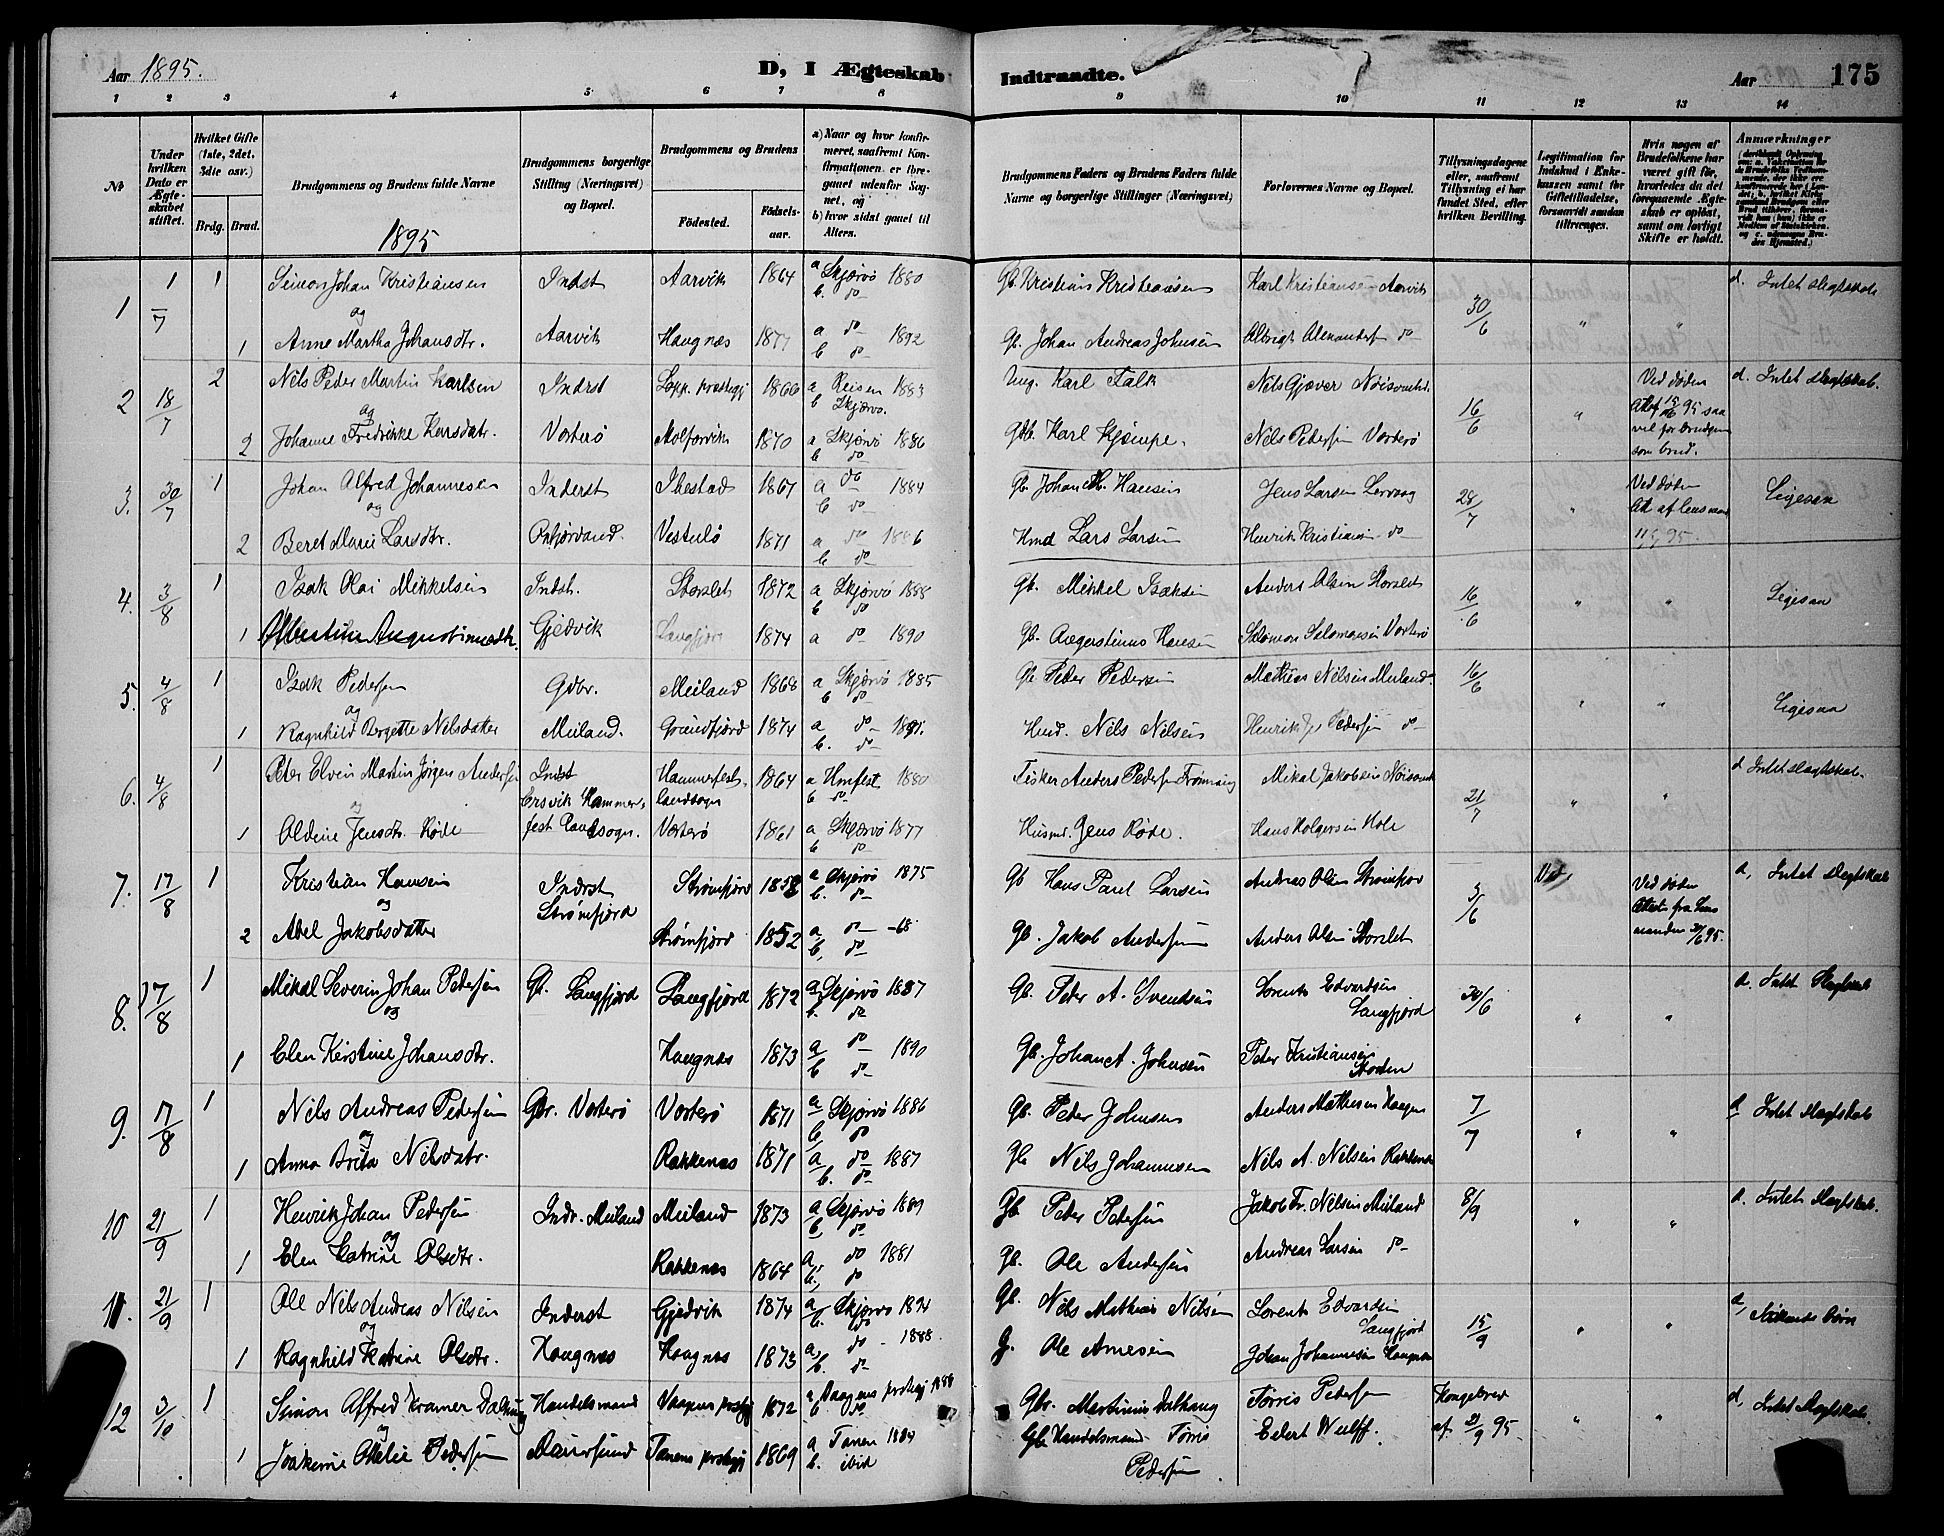 Aar 1895.
D, I Ægteskab Indtraadte.
Aar 175
1 2 3 4 5 6 7 8 9 10 11 12 13 14
№
Under hvilken Dato er Ægteskabet stiftet.
Hvilket Gifte (1ste, 2det, 3die osv.)
Brdg. Brud.
Brudgommens og Brudens fulde Navne
Brudgommens borgerlige Stilling (Næringsvei) og Bopæl.
Brudgommens og Brudens
Fødested. Fødselsaar.
a) Naar og hvor konfirmeret, saafremt Konfirmationen er foregaaet udenfor Sognet, og
b) hvor sidst gaaet til Alters.
Brudgommens Faders og Brudens Faders fulde Navne og borgerlige Stillinger (Næringsvei)
Forlovernes Navne og Bopæl.
Tillysningsdagene eller, saafremt Tillysning ei har fundet Sted, efter hvilken Bevilling.
Legitimation for Indskud i Enkekassen samt for Giftetilladelse, forsaavidt saadan tiltrænges.
Hvis nogen af Brudefolkene har været gift før, hvorledes da det foregaaende Ægteskab er opløst, samt om lovligt Skifte er holdt.
Anmærkninger
1895
1 1/7 1 Simon Johan Kristiansen Indst Aarvik 1864 a Skjærvø 1880 Gb. Kristian Kristiansen Karl Kristiansen Aarvik 30/6 " " d. Intet slegtskab
og b. do
1 Anne Martha Johansdtr. Aarvik Haugnæs a do 1892 Gb. Johan Andreas Johnsen Albrigt Alexanders do
b do
2 18/7 2 Nils Peder Martin Karlsen Indrst Lopp. præstegj 1866 a Reisen 1883 Ung. Karl Falk Nils Gjæver 16/6 " Ved døden d. Intet slegtskab.
og b Skjærvø. 95 saa
2 Johanne Fredrikke Karsdatr. Vorterø 1870 a Skjærvø 1886 Gdb. Karl Kjæmpe. Nils Pedersen Vorterø vel for brudgom
b do som brud.
3. 30/7 1 Johan Alfred Johannesen Inderst Ibestad 1867 a do 1884 Gb. Johan Hansen Jens Larsen 28/7 " Ved døden Ligesaa
og b do
2 Beret Marie Larsdtr. Vesterlø 1871 a do 1886 Hmd Lars Larsen Henrik Kristiansen do 95.
b do
4. 3/8 1 Isak Olai Mikkelsen Indst. Storslet 1872 a Skjærvø 1888 Gb. Mikkel Isaksen Anders Olsen Storslet 16/6 " " Ligesaa
b do
1 Albertine Augustinusdtr. Gjedvik Langfjor 1874 a do 1890 Gb. Augustinus Hansen Salomon Salomonsen Vorterø
5. 4/8 1 Isak Pedersen Gdbr. Meiland 1868 a Skjærvø 1885 Gb Peder Pedersen Mathias Nilsen Meiland. 16/6 " " Ligesaa
og b do
1 Ragnhild Bergette Nilsdatter Meiland. Grundfjord 1874 a do Hmd. Nils Nilsen Henrik Pedersen do
b. do
6. 4/8 1 Peter Elvin Martin Jørgen Andersen Indst Hammerfest 1864 a Hmfest 1880 Fisker Anders Pedersen Mikal Jakobsen 21/7 " " d Intet slegtskab.
og Ersvik Hammer- landsogn b do
1 Oldine Jensdtr. Røde fest Landsogn. Vorterø 1861 a Skjærvø 1877 Husmd. Jens Røde. Hans Holgersen Hole
b do
7. 17/8 1 Kristian Hansen Indrst Strømfjord 1858 a Skjærvø 1875 Gb Hans Parel Larsen Andreas Olsen Strømfjor 3/6 Ved Ved døden d, Intet slegtskab
og Strømfjord b. do Attest fra Lens
2 Abel Jakobsdatter Strømfjord 1852 a do -68 Gb. Jakob Andersen Anders Olsen Storslet manden 95.
b, do
8. 17/8 1 Mikal Severin Johan Pedersen Gb. Langfjord Langfjord 1872 a Skjærvø 1887 Gb. Peder A. Svendsen Lorents Edvardsen Langfjord 30/6 " " d. Intet slegtskab
og b. do
1 Elen Kirstine Johansdtr. Haugnæs 1873 a do 1890 Gb. Johan A. Johnsen Peter Kristiansen
b do
9. 17/8 1 Nils Andreas Pedersen Gbr. Vorterø Vorterø 1871 a Skjærvø 1886 Gb. Peder Johnsen Anders Mathesen 7/7 " " d. Intet slegtskab
og b do
1 Anna Brita Nilsdatr. Rakkenæs 1871 a do 1887 Gb Nils Johannesen Nils A. Nilsen Rakkenæs
b. do
10 21/9 1 Henrik Johan Pedersen Indr. Meiland Meiland 1873 a Skjærvø 1889 Gb. Peder Pedersen Jakob Fr. Nilsen Meiland 8/9 " " d. Intet slegtskab.
og b do
1 Elen Katrine Olsdtr. Rakkenæs 1864 a, do 1881 Gb. Ole Andersen Andreas Larsen do
b, do
11. 21/9 1 Ole Nils Andreas Nilsen Inderst Gjedvik 1874 a Skjærvø 1894 Gb. Nils Mathias Nilsen Lorents Edvardsen Langfjord 15/9 " " d, Søskende børn
og b. do
1 Ragnhild Katrine Olsdtr. Haugnæs Haugnæs 1873 a, do 1888. G. Ole Arnesen Johan Johannesen Haugnæs
b. do
12 3/10 1 Simon Alfred Kramer Dalhaug Handelsmand Vaagens prstgj 1872 a Vaagens prstegj 1888 Gbr. Martinus Dalhaug Tørris Pedersen Kongebrev " " d, Intet slegtskab.
og b. do
1 Joakime Otelie Pedersen Maursund Tanens prstegj 1869 a Tanen 1884 Gb. Handelsmand Tørris Pedersen Edert Wulff. af 21/9 95.
b. ibid